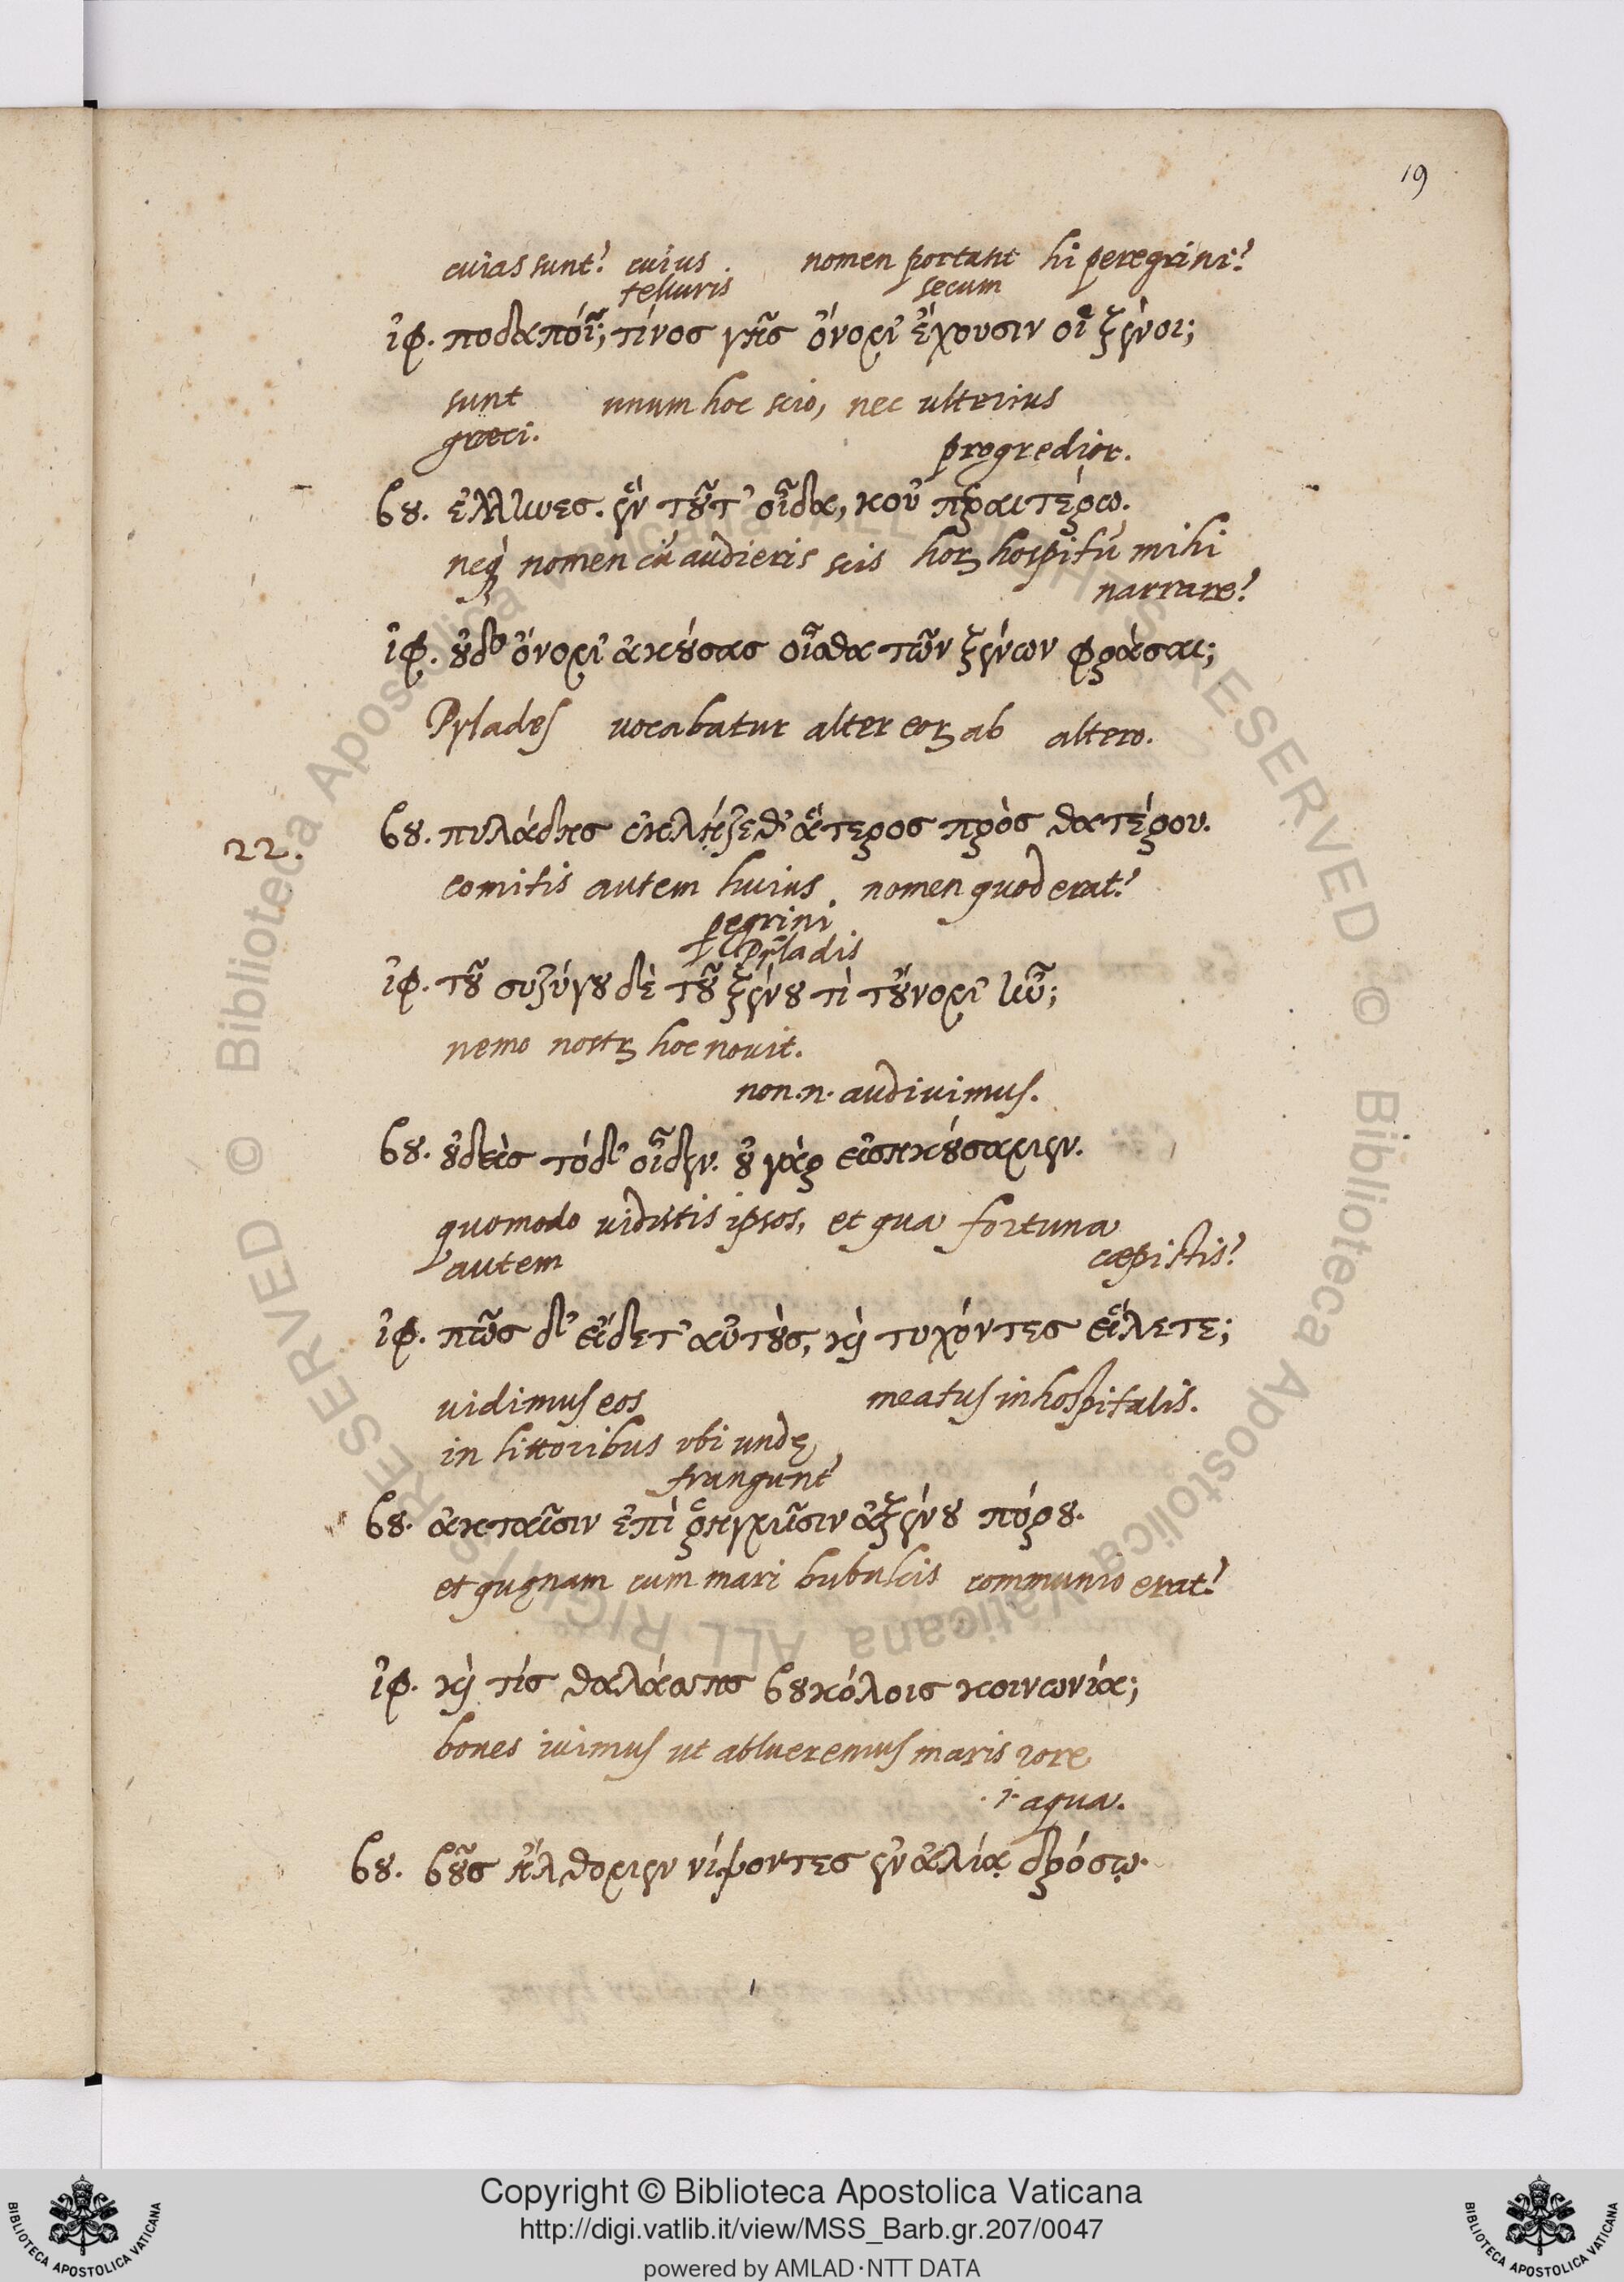 19
cuias sunt? cuius nomen portant hi peregrini?
telluris secum
ἰφ. ποδαποί; τίνος γῆς ὄνομ' ἔχουσιν οἱ ξένοι;
sunt unum hoc scio, nec ulterius
græci. progredior.
βου. ἕλληνες. ἓν τοῦτ' οἶδα, κοὐ περαιτέρω.
neq nomen cū audieris scis horꝝ hospitū mihi
narrare?
ἰφ. οὐδ' ὄνομ' ἀκούσας οἶσθα τῶν ξένων φράσαι;
Pylades uocabatur alter eorꝝ ab altero.
22.
βου. πυλάδης ἐκλῄζεθ' ἅτερος πρὸς θατέρου.
comitis autem huius nomen quod erat?
pegrini
Pyladis
ἰφ. τοῦ συζύγου δὲ τοῦ ξένου τί τοὔνομ' ἦν;
nemo nostrꝝ hoc nouit.
non .n. audiuimus.
βου. οὐδεὶς τόδ' οἶδεν. οὐ γὰρ εἰσηκούσαμεν.
quomodo uidistis ipsos, et qua fortuna
autem cæpistis?
ἰφ. πῶς δ' εἴδετ' αὐτοὺς, καὶ τυχόντες εἵλετε;
uidimus eos meatus inhospitalis.
in littoribus ubi undę
frangunt
βου. ἀκταῖσιν ἐπὶ ῥηγμῖσιν ἀξένου πόρου.
et quęnam cum mari bubulcis communio erat?
ἰφ. καὶ τίς θαλάσσης βουκόλοις κοινωνία;
boues iuimus ut ablueremus maris rore
.i. aqua.
βου. βοῦς ἤλθομεν νίψοντες ἐναλίᾳ δρόσῳ.
Copyright © Biblioteca Apostolica Vaticana
http://digi.vatlib.it/view/MSS_Barb.gr.207/0047
powered by AMLAD·NTT DATA
BIBLIOTECA APOSTOLICA VATICANA
BIBLIOTECA APOSTOLICA VATICANA